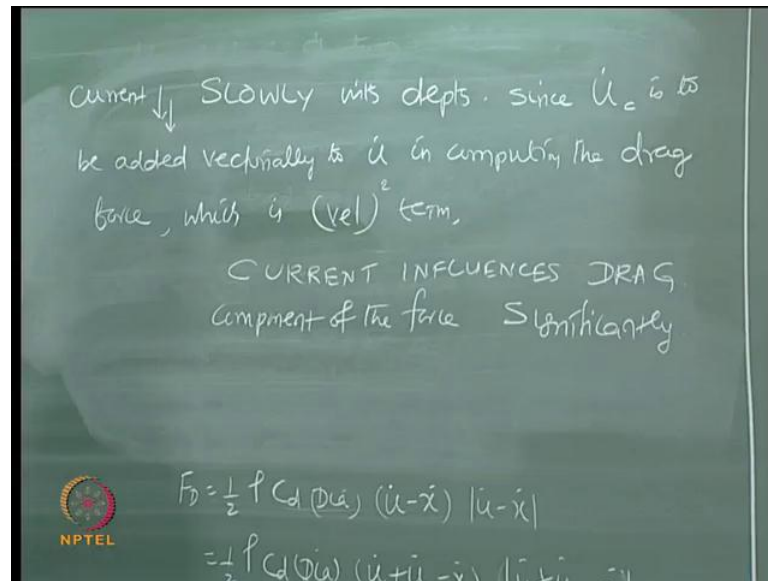 Current ↓↓ SLOWLY with depth. since u̇c is to
be added vectorially to u̇ in computing the drag
force, which is (vel)² term.
CURRENT INFLUENCES DRAG
component of the force Significantly
F_D = ½ ρ Cd (Dia) (u̇-ẋ) |u̇-ẋ|
= ½ ρ Cd (Dia) (u̇+u̇ -ẋ)
NPTEL